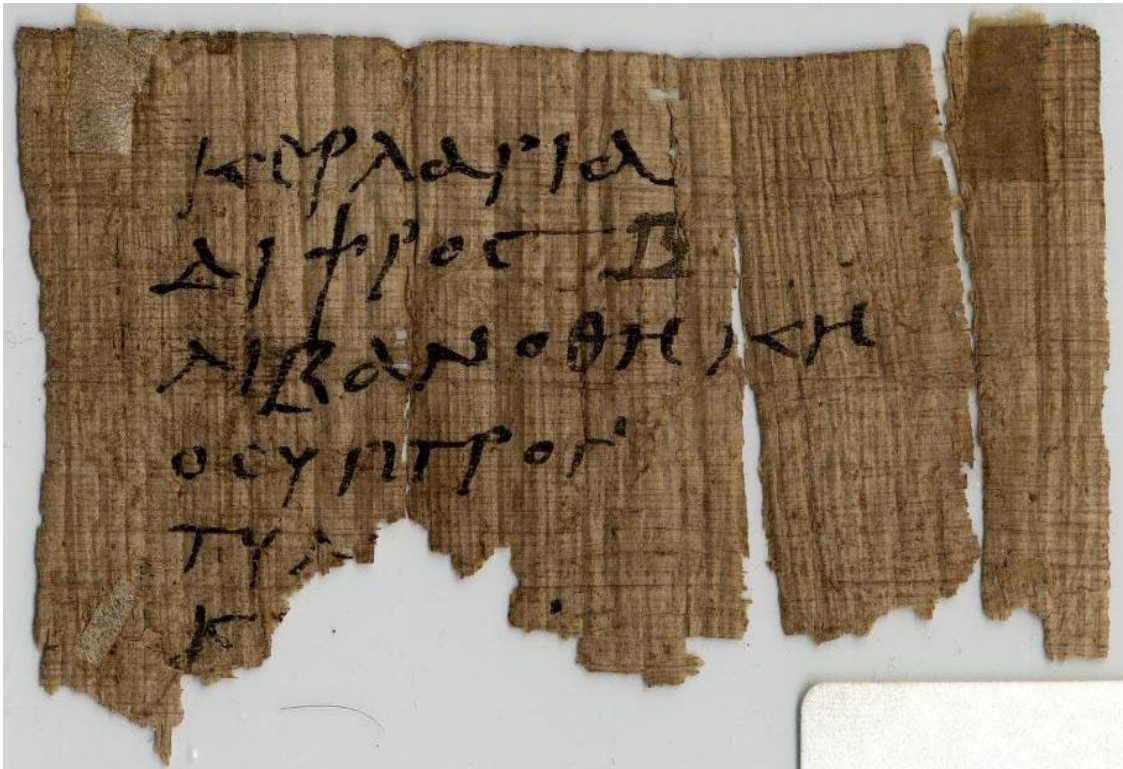 κερλαρια
διφρος β
λιβανοθηκη
οσυπτρον
τυλ
κ